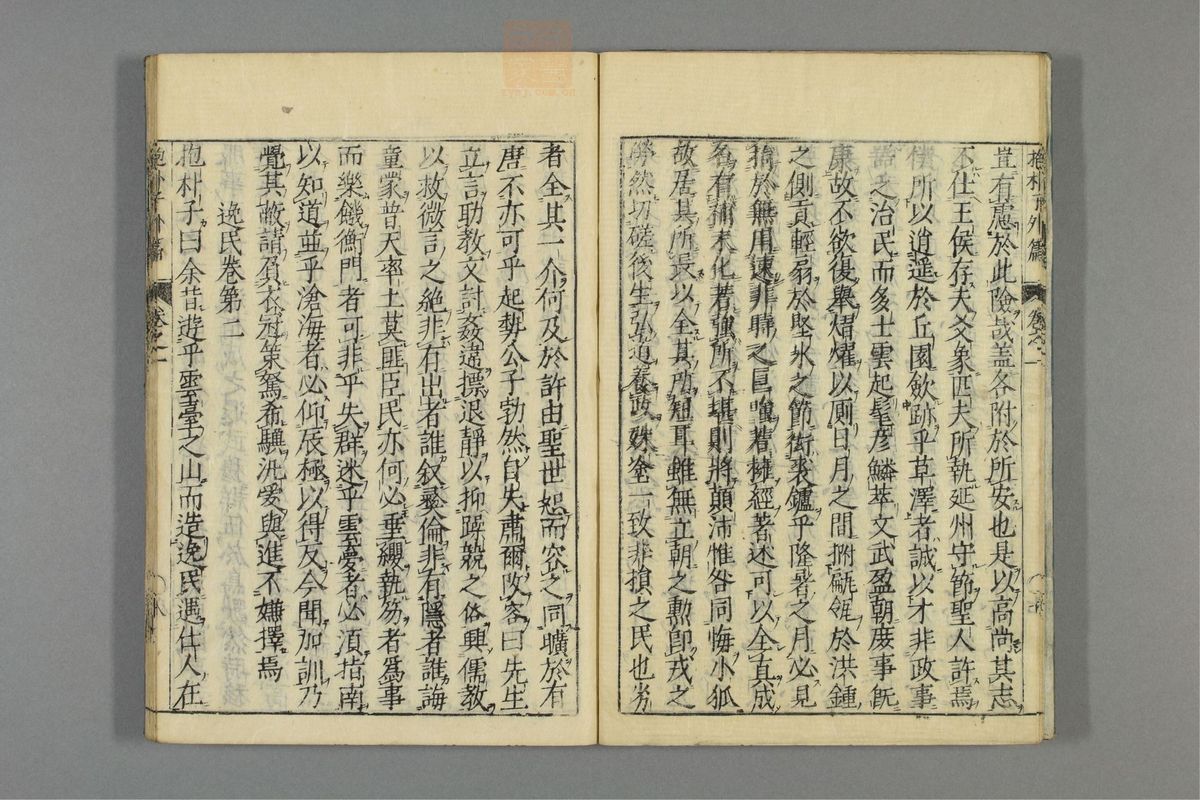 抱朴子外篇
卷之一
豈有慝於此險哉盖各附於所安也是以高尚其志
不仕王侯存夫爻象匹夫所執延州守節聖人許焉
僕所以逍遥於丘園歛跡乎草澤者誠以才非政事
器乏治民而多士雲起髦彦鱗萃文武盈朝庶事既
康故不欲復舉熠燿以厠日月之間拊甂瓴於洪鍾
之側貢輕扇於堅氷之節衒裘鑪乎隆暑之月必見
捐於無用速非時之巨嗤若擁經著述可以全真成
名有補末化若強所不堪則將顛沛惟咎同悔小狐
故居其所長以全其所短耳雖無立朝之勳即戎之
勞然切磋後生弘道養正殊塗一致非損之民也劣
者全其一介何及於許由聖世恕而容之同曠於有
唐不亦可乎起勢公子勃然自失肅爾改容曰先生
立言助教文討姦違摽退靜以抑躁競之俗興儒教
以救微言之絶非有出者誰叙彝倫非有隱者誰誨
童蒙普天率土莫匪臣民亦何必垂纓執笏者爲事
而樂饑衡門者可非乎失群迷乎雲夢者必須指南
以知道並乎滄海者必仰辰極以得反今聞加訓乃
覺其蔽請負衣冠策駑希驥汎愛與進不嫌擇焉
逸民卷第二
抱朴子曰余昔遊乎雲臺之山而造逸民遇仕人在
抱朴子外篇
卷之一